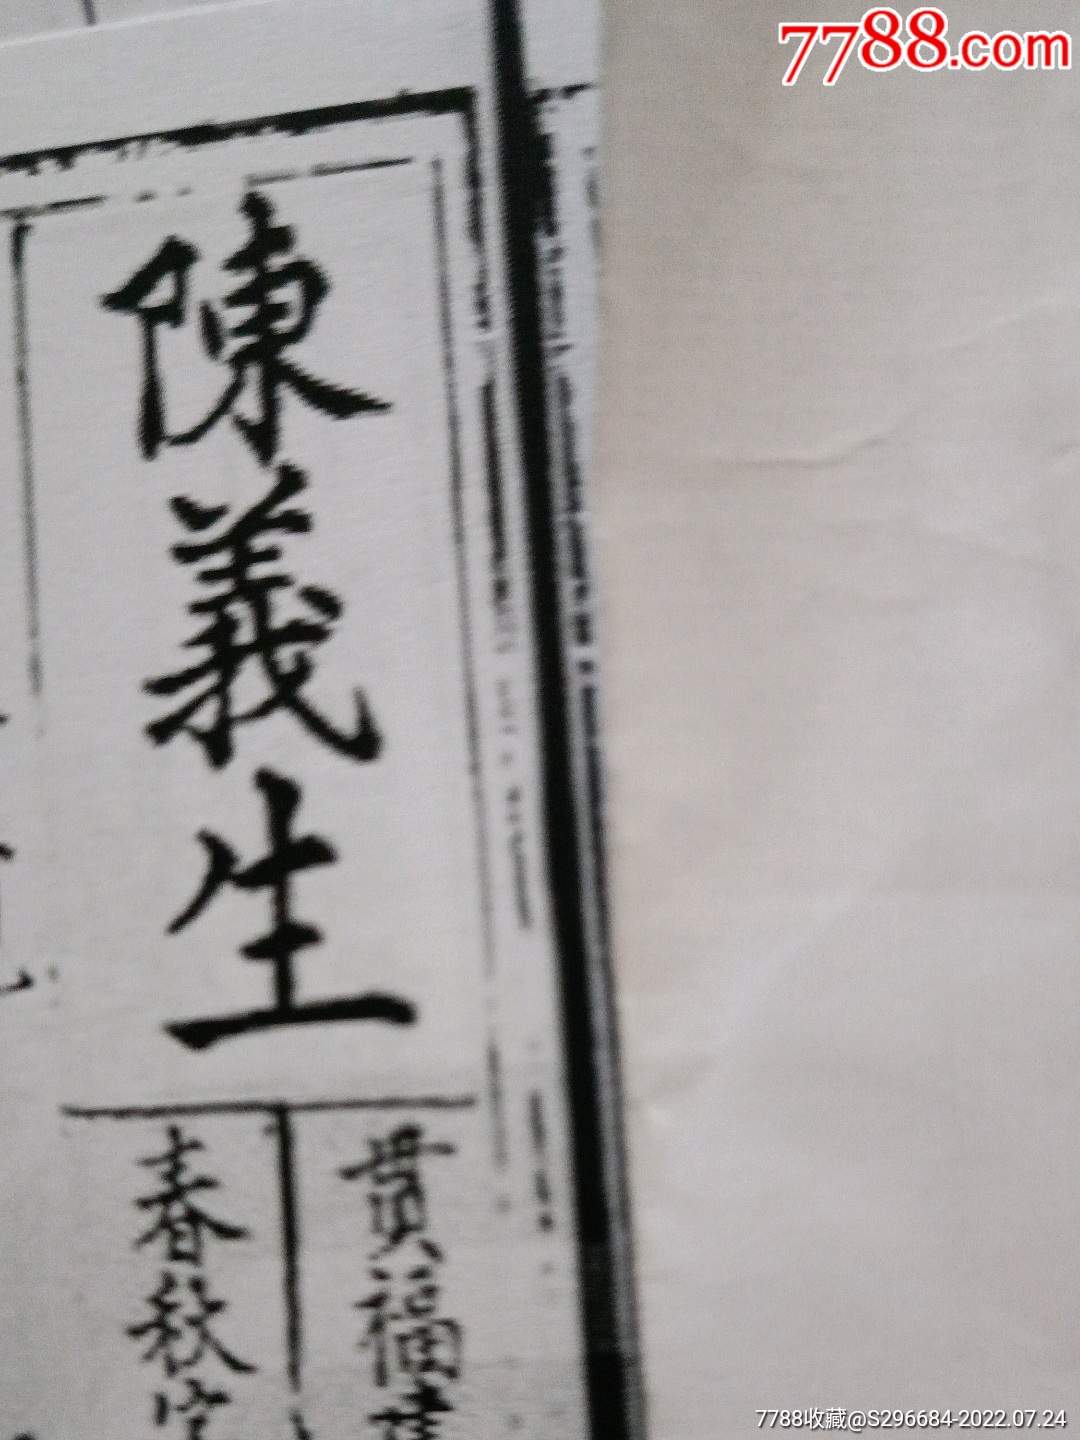 7788.com
陳義生
贯福建
春秋定
7788收藏@S296684-2022.07.24